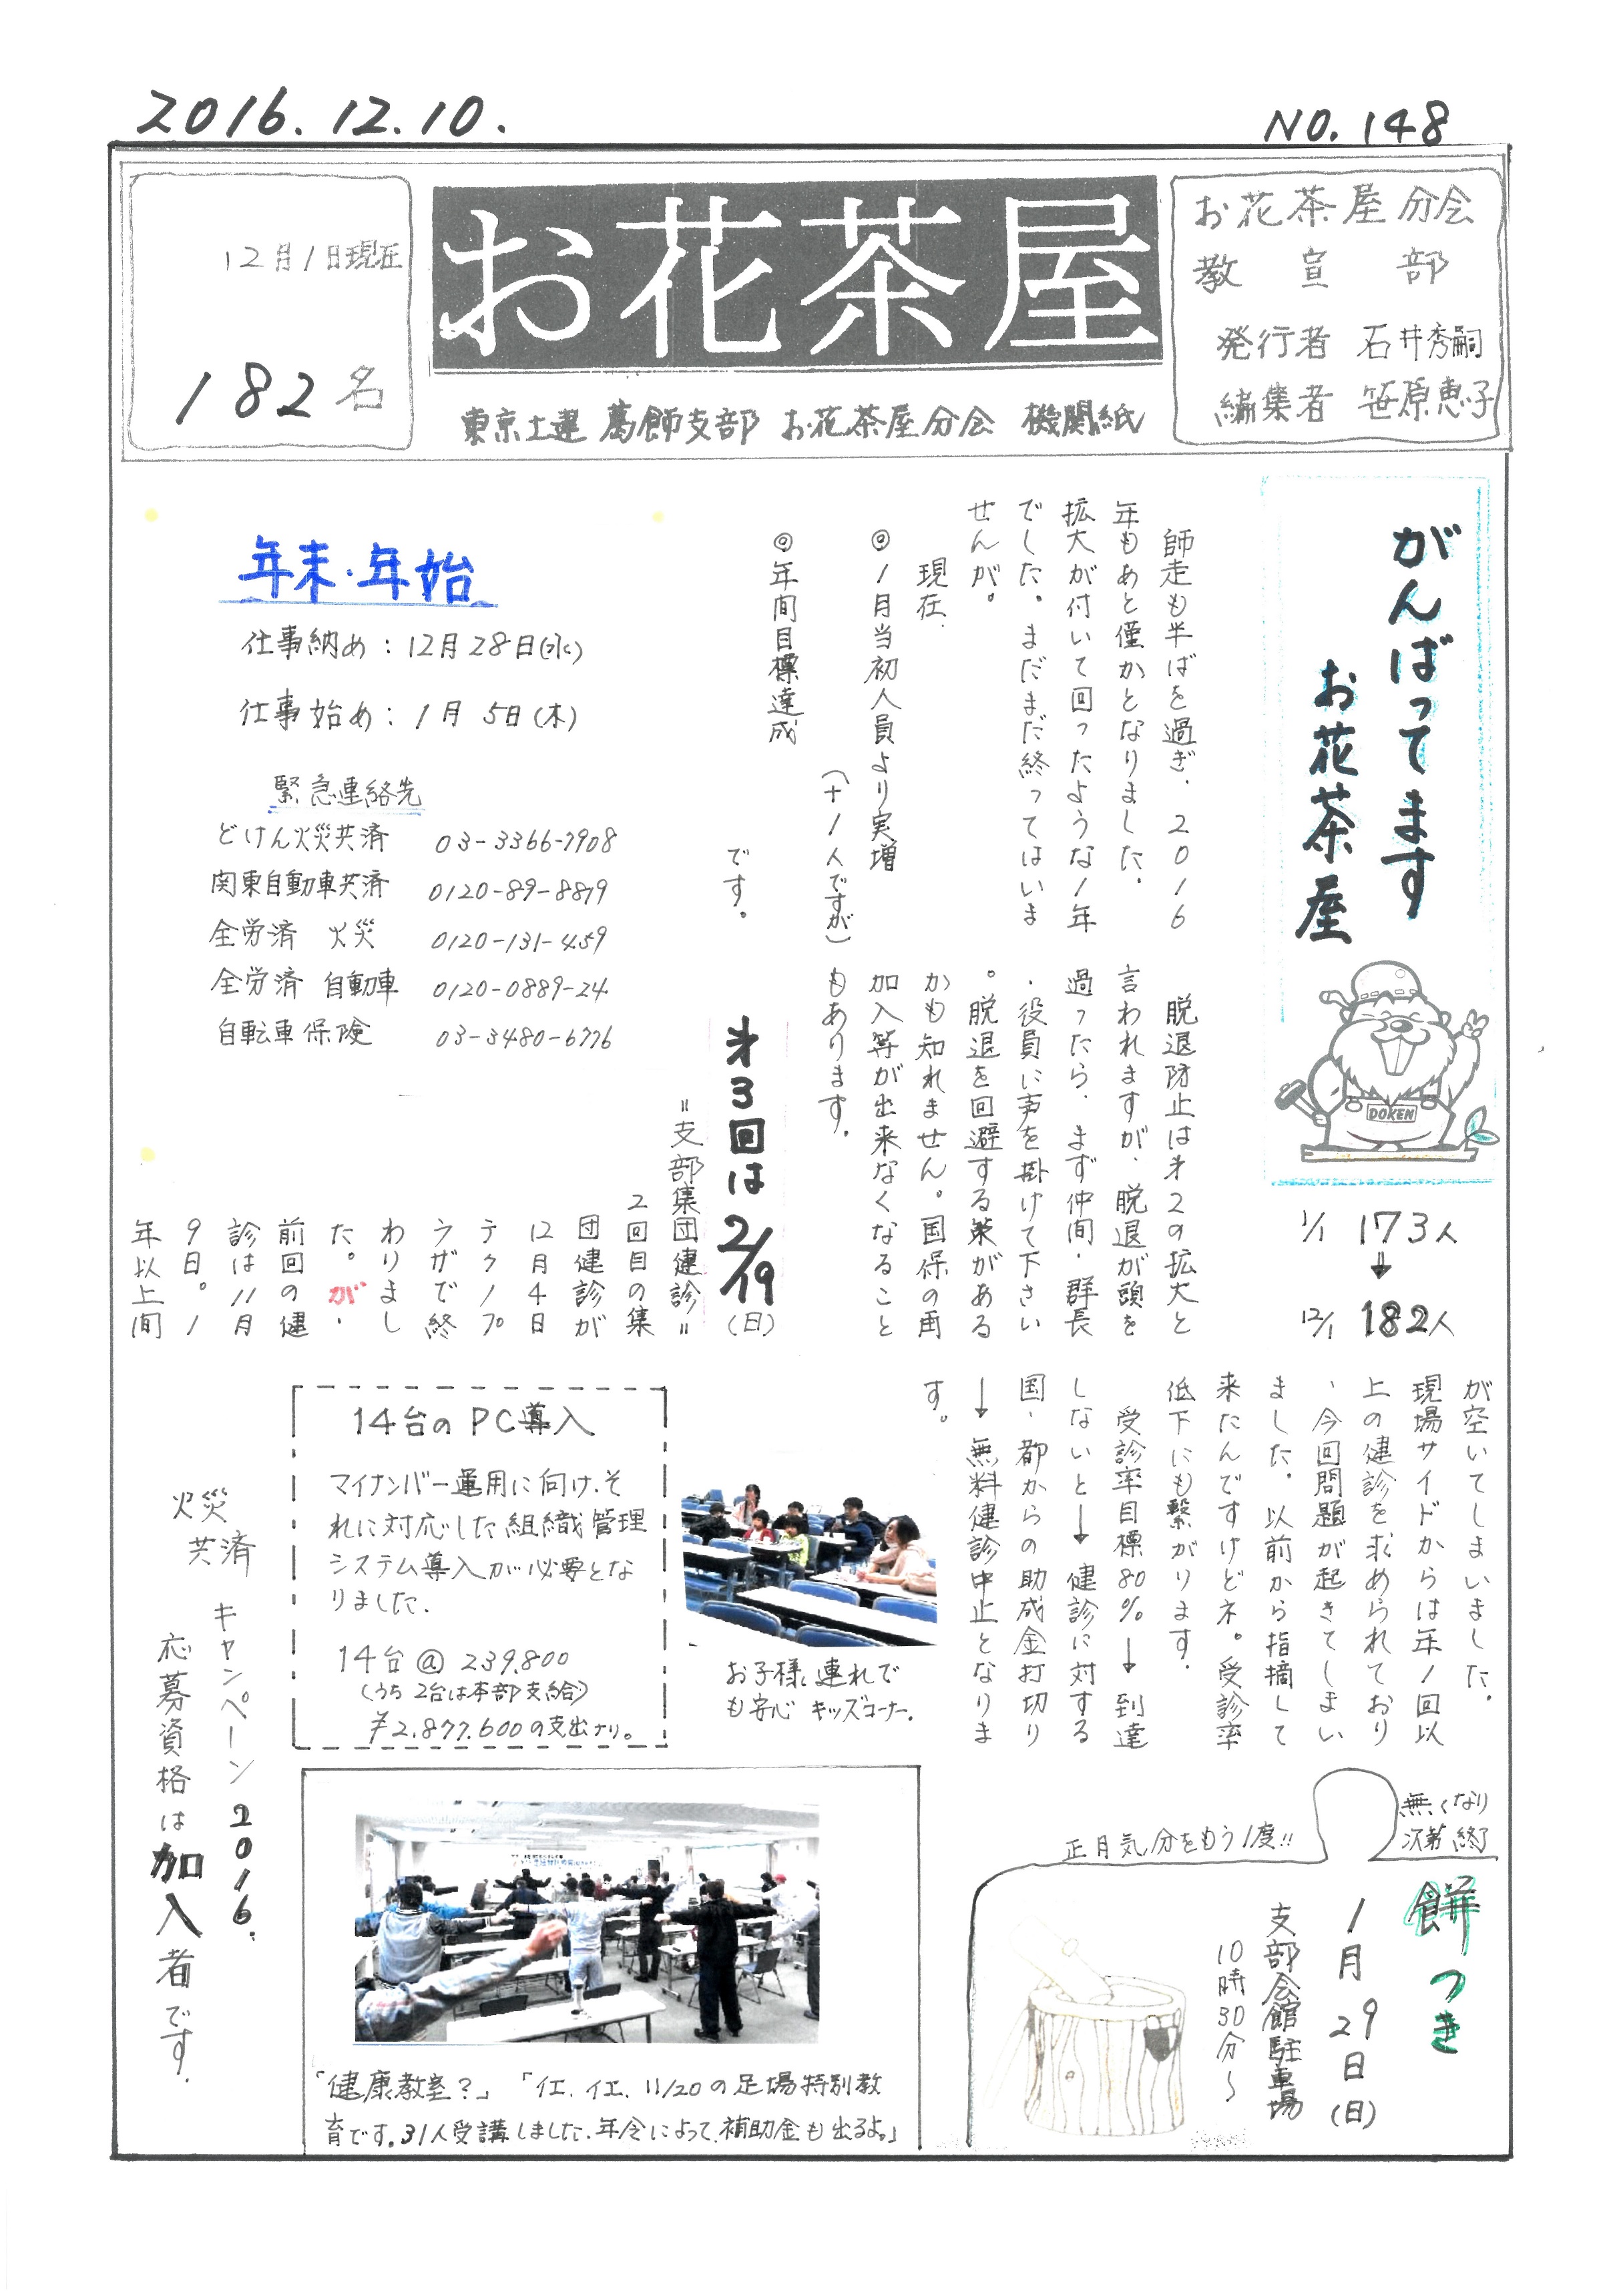 2016.12.10.
NO.148
12月1日現在
182名
お花茶屋
東京土建 葛飾支部 お花茶屋分会 機関紙
お花茶屋分会
教宣部
発行者 石井秀嗣
編集者 笹原恵子
がんばってます
お花茶屋
DOKEN
1/1 173人
↓
12/1 182人
師走も半ばを過ぎ、2016
年もあと僅かとなりました。
拡大が付いて回ったような1年
でした。まだまだ終ってはいま
せんが。
現在、
◎1月当初人員より実増
(+1人ですが)
◎年間目標達成
です。
脱退防止は才2の拡大と
言われますが、脱退が頭を
過ったら、まず仲間・群長
・役員に声を掛けて下さい
。脱退を回避する策がある
かも知れません。国保の再
加入等が出来なくなること
もあります。
才3回は2/19(日)
=支部集団健診=
2回目の集
団健診が
12月4日
テクノプ
ラザで終
わりまし
た。が、
前回の健
診は11月
9日。1
年以上間
が空いてしまいました。
現場サイドからは年1回以
上の健診を求められており
、今回問題が起きてしまい
ました。以前から指摘して
来たんですけどネ。受診率
低下にも繋がります。
受診率目標80%→到達
しないと→健診に対する
国・都からの助成金打切り
→無料健診中止となりま
す。
年末・年始
仕事納め：12月28日(水)
仕事始め：1月5日(木)
緊急連絡先
どけん火災共済 03-3366-7908
関東自動車共済 0120-89-8819
全労済 火災 0120-131-459
全労済 自動車 0120-0889-24
自転車保険 03-3480-6776
14台のPC導入
マイナンバー運用に向け、そ
れに対応した組織管理
システム導入が必要とな
りました.
14台@239,800
(うち2台は本部支給)
￥2,877,600の支出ナリ。
お子様連れで
も安心 キッズコーナー.
火災
共済
キャンペーン2016.
応募資格は加入者です.
「健康教室?」「イエ、イエ、11/20の足場特別教
育です。31人受講しました、年令によって、補助金も出るよ。」
正月気分をもう1度!!
無くなり
次第終了
餅つき
1月29日(日)
支部会館駐車場
10時30分〜